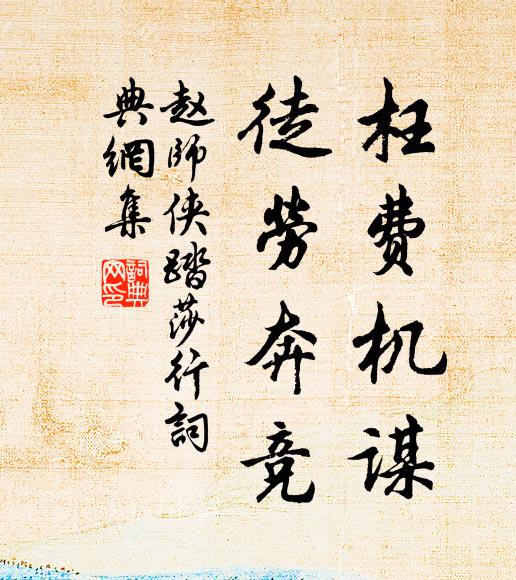 枉费机谋
徒劳奔竞
赵师侠踏莎行詞
典網集
詞典網印